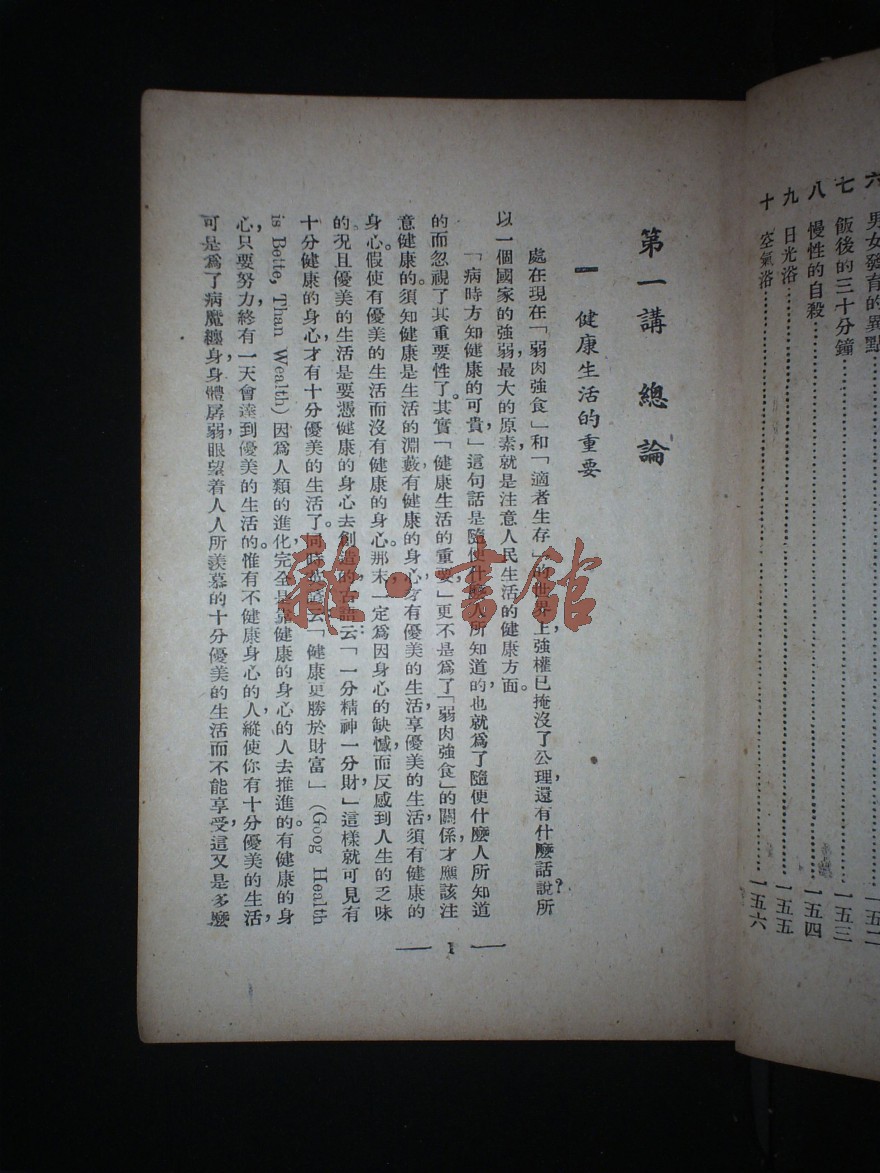 六 男女發育的異點…………一五二
七 飯後的三十分鐘…………一五三
八 慢性的自殺…………一五四
九 日光浴…………一五五
十 空氣浴…………一五六
第一講 總論
一 健康生活的重要
處在現在「弱肉強食」和「適者生存」的世界上，強權已掩沒了公理，還有什麼話說？所
以一個國家的強弱，最大的原素，就是注意人民生活的健康方面。
「病時方知健康的可貴」這句話是隨使什麼人所知道的，也就爲了隨便什麼人所知道
的而忽視了其重要性了。其實「健康生活的重要」更不是爲了「弱肉強食」的關係，才應該注
意健康的。須知健康是生活的淵藪，有健康的身心，才有優美的生活，享優美的生活，須有健康的
身心。假使有優美的生活而沒有健康的身心，那末，一定爲因身心的缺憾，而反感到人生的乏味
的。況且優美的生活是要憑健康的身心去創造的，古語云：「一分精神一分財」，這樣就可見有
十分健康的身心，才有十分優美的生活了。同時英諺云：「健康更勝於財富」（Goog Health
is Bette, Than Wealth）因爲人類的進化，完全是靠健康的身心的人去推進的。有健康的身
心，只要努力，終有一天會達到優美的生活的。惟有不健康身心的人，縱使你有十分優美的生活，
可是爲了病魔纏身，身體孱弱，眼望着人人所羨慕的十分優美的生活而不能享受，這又是多麼
— 1 —
雜·書館